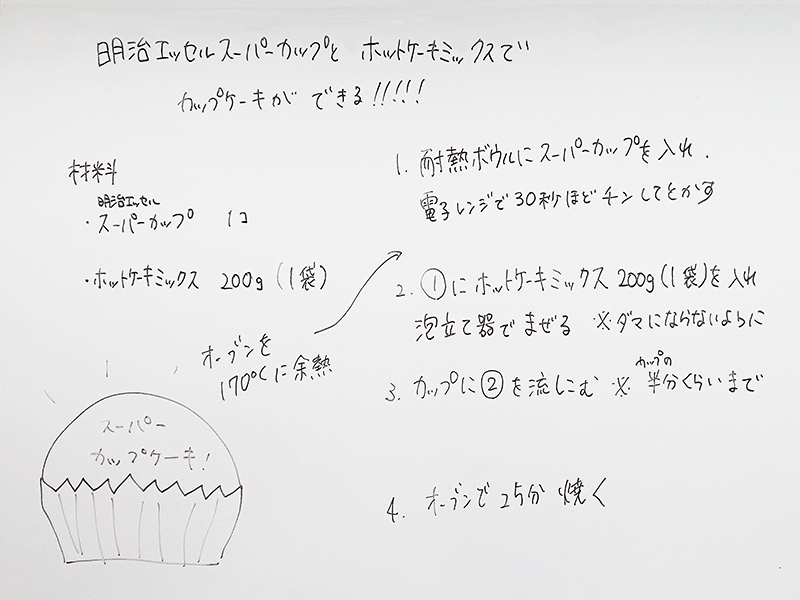 明治エッセルスーパーカップと ホットケーキミックスで
カップケーキが できる!!!!!
材料
明治エッセル
・スーパーカップ 1コ
・ホットケーキミックス 200g (1袋)
オーブンを
170℃に余熱
1. 耐熱ボウルにスーパーカップを入れ.
電子レンジで30秒ほどチンしてとかす
2. ①にホットケーキミックス 200g(1袋)を入れ
泡立て器でまぜる ※ダマにならないように
カップの
3. カップに②を流しこむ ※ 半分くらいまで
4. オーブンで 25分 焼く
スーパー
カップケーキ!